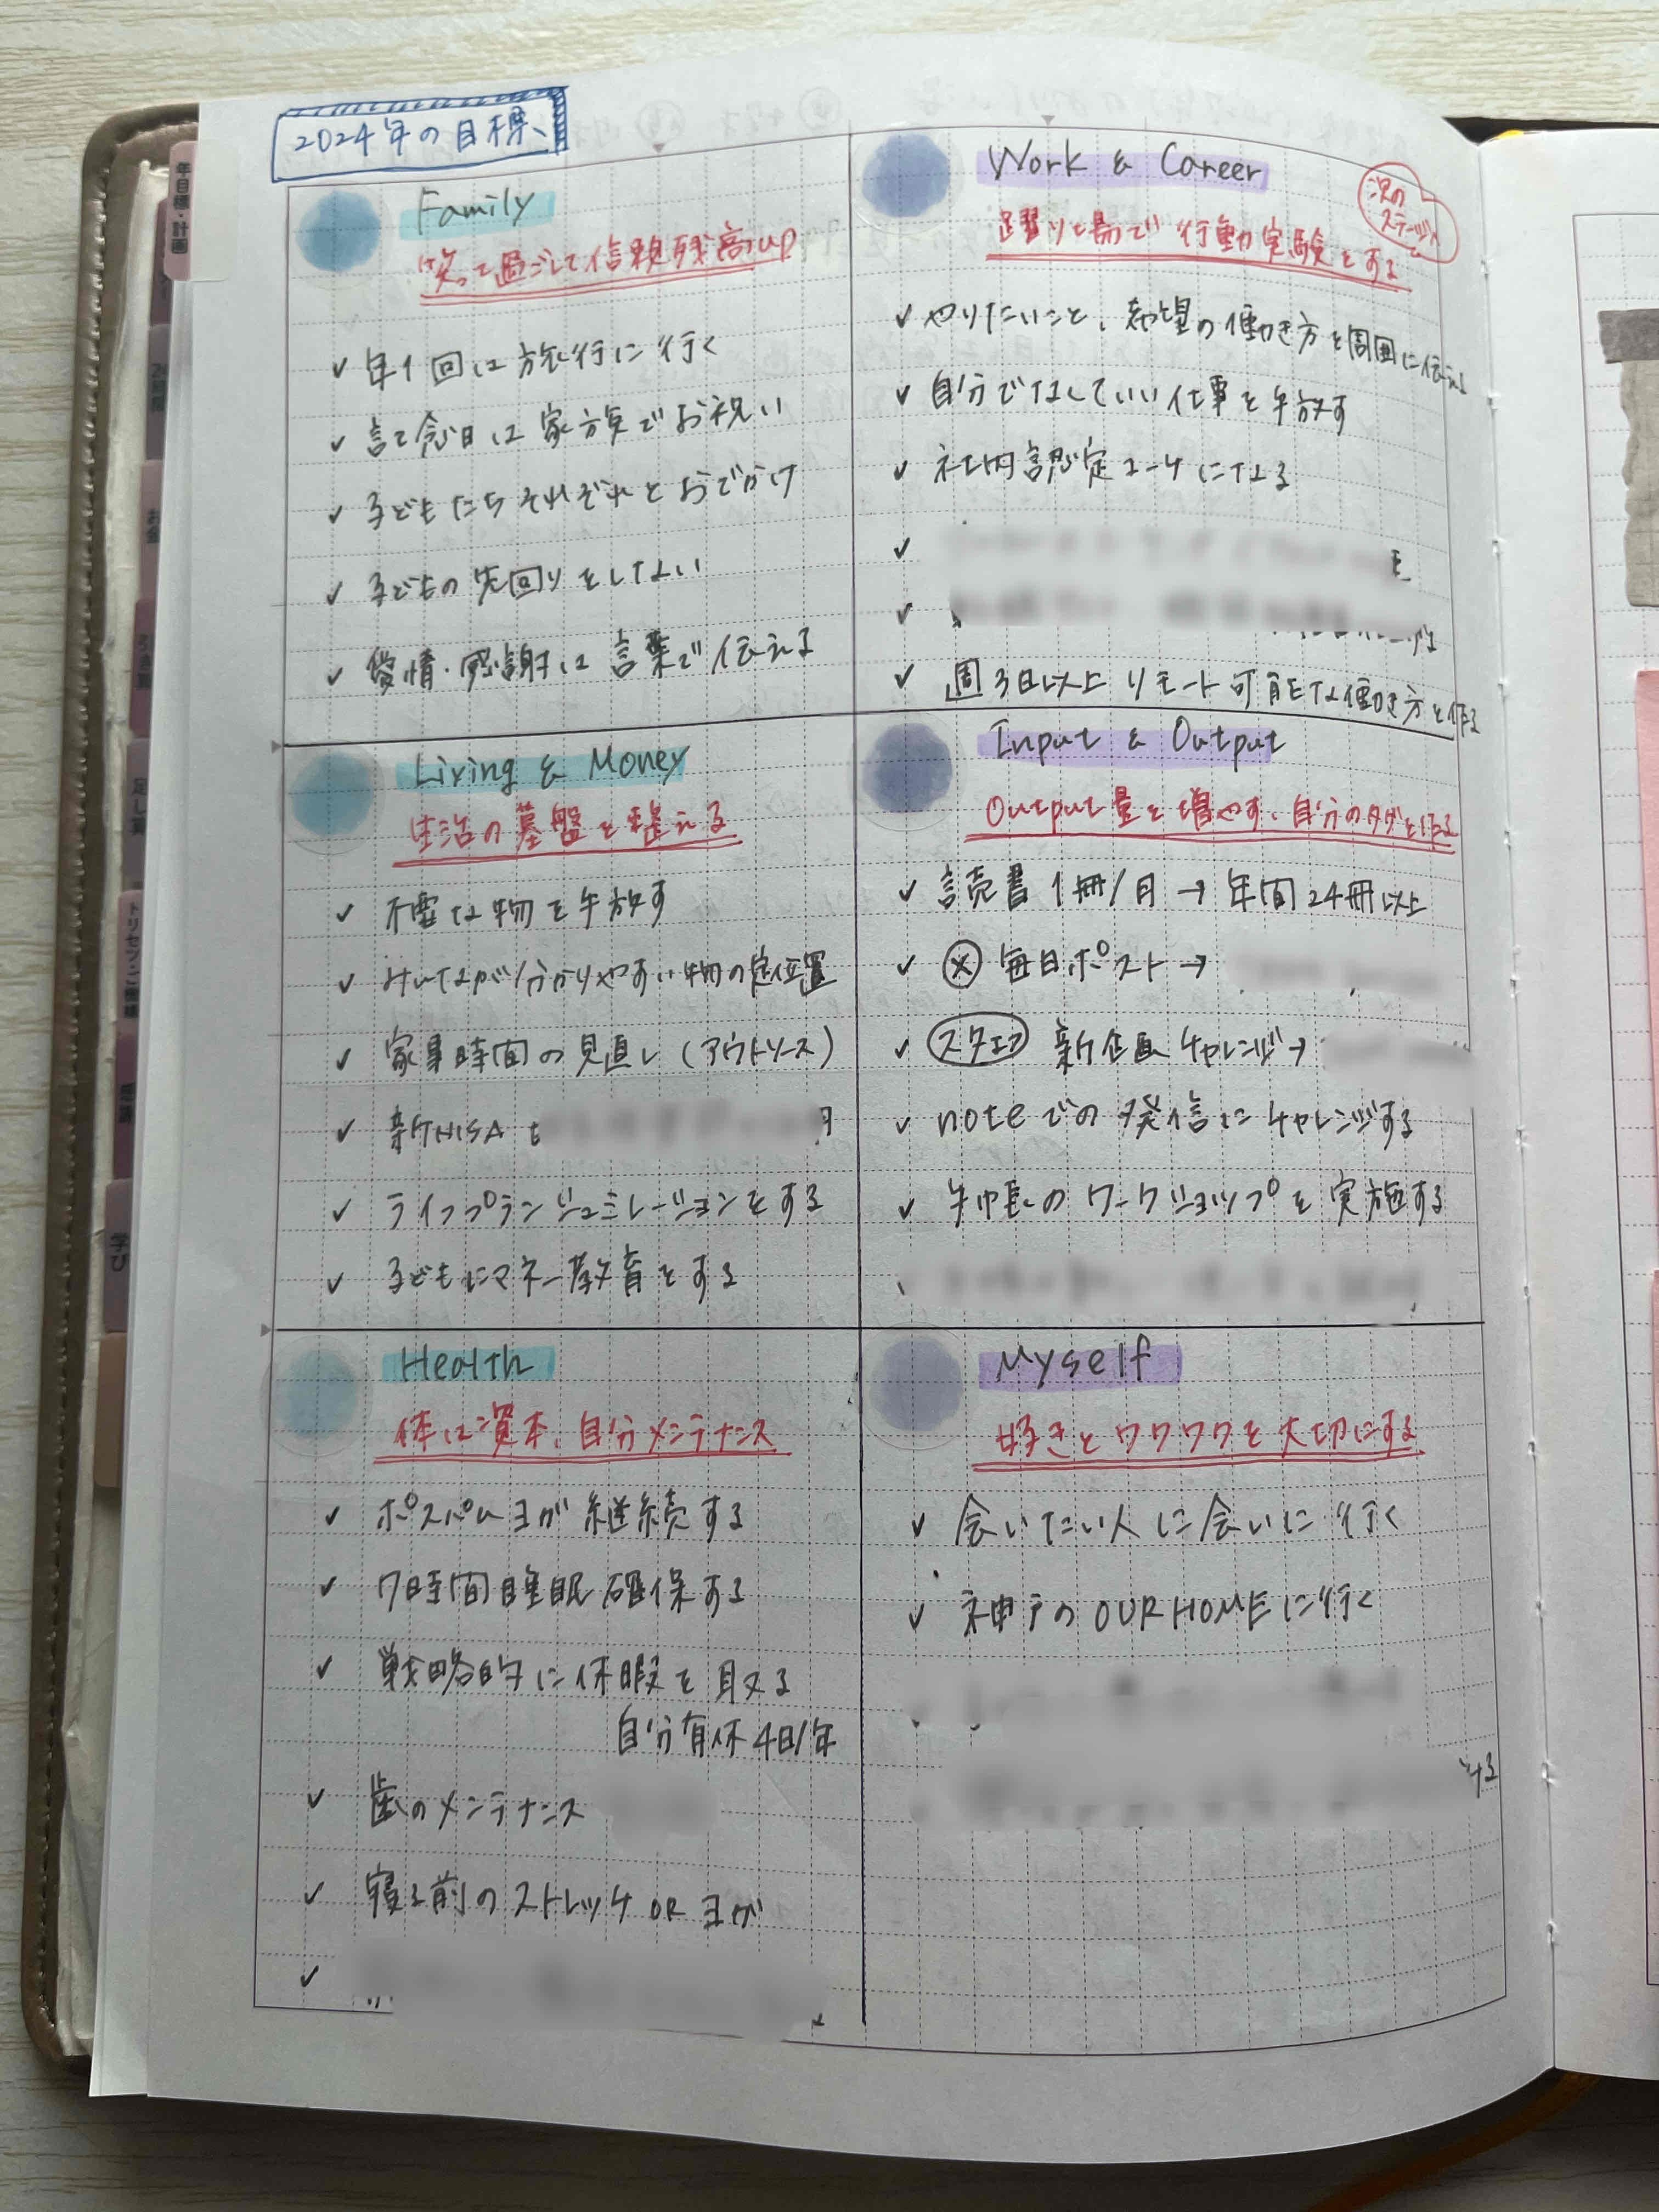 2024年の目標、
Family
笑って過ごして信頼残高up
✓ 年1回は旅行に行く
✓ 記念日は家族でお祝い
✓ 子どもたちそれぞれとおでかけ
✓ 子どもの先回りをしない
✓ 愛情・感謝は言葉で伝える
Work & Career
次のステージへ
踊り場で行動実験をする
✓ やりたいこと、希望の働き方を周囲に伝える
✓ 自分でなしていい仕事を手放す
✓ 社内認定コーチになる
✓ を
✓
✓ 週3日以上リモート可能な働き方を作る
Living & Money
生活の基盤を整える
✓ 不要な物を手放す
✓ みんなが分かりやすい物の定位置
✓ 家事時間の見直し(アウトソース)
✓ 新NISA 月
✓ ライフプランシュミレーションをする
✓ 子どもにマネー教育をする
Input & Output
Output量を増やす、自分のタグを作る
✓ 読書1冊/月→年間24冊以上
✓ X 毎日ポスト→
✓ スタエフ 新企画チャレンジ→
✓ noteでの発信にチャレンジする
✓ 手帳のワークショップを実施する
Health
体は資本、自分メンテナンス
✓ ポスパムヨガ継続する
✓ 7時間睡眠確保する
✓ 戦略的に休暇を取る
自分有休4日/年
✓ 歯のメンテナンス
✓ 寝る前のストレッチ OR ヨガ
✓
Myself
好きとワクワクを大切にする
✓ 会いたい人に会いに行く
✓ 神戸のOUR HOMEに行く
年目標・計画
お金
引き算
足し算
トリセツ・ご機嫌
学び